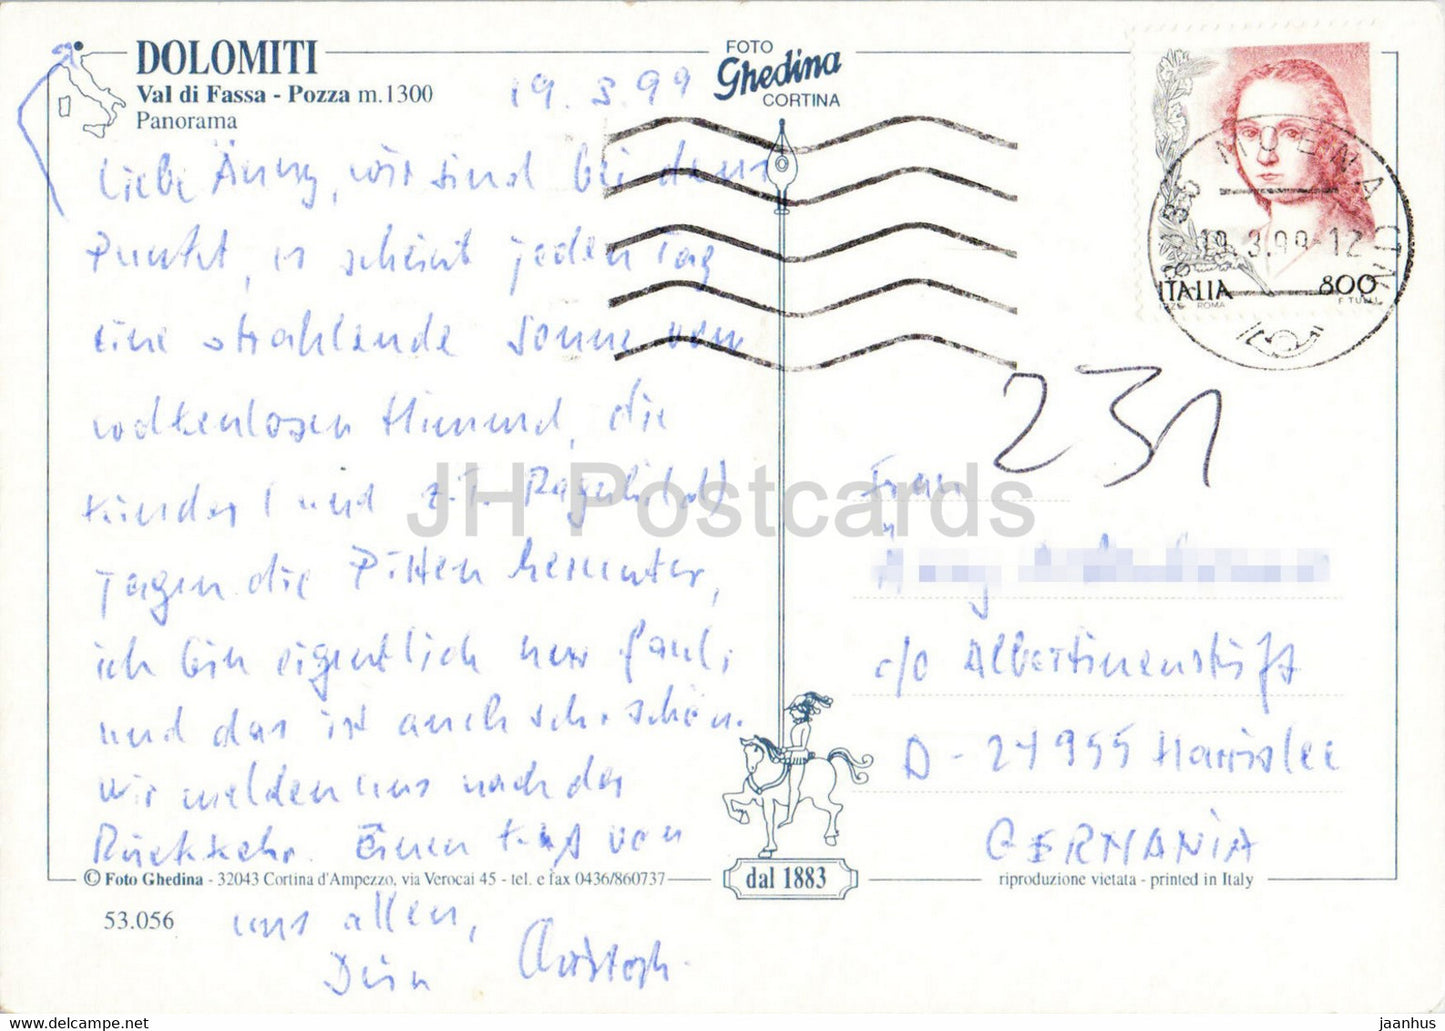 DOLOMITI
Val di Fassa - Pozza m.1300
Panorama
FOTO
Ghedina
CORTINA
19.3.99
Liebe Änny, wir sind bei dem
Punkt, es scheint jeden Tag
eine strahlende Sonne vom
wolkenlosen Himmel, die
Kinder (und z.T. Ragnhild)
jagen die Pisten herunter,
ich bin eigentlich nur faul,
und das ist auch sehr schön.
Wir melden uns nach der
Rückkehr. Einen von
uns allen,
Dein Christoph.
MOENA (TN)
19.3.99-12
ITALIA 800
ROMA
231
Frau
c/o Albertinenstift
D-24955 Harrislee
GERMANIA
© Foto Ghedina - 32043 Cortina d'Ampezzo, via Verocai 45 - tel. e fax 0436/860737
dal 1883
riproduzione vietata - printed in Italy
53.056
JH Postcards
www.delcampe.net
jaanhus